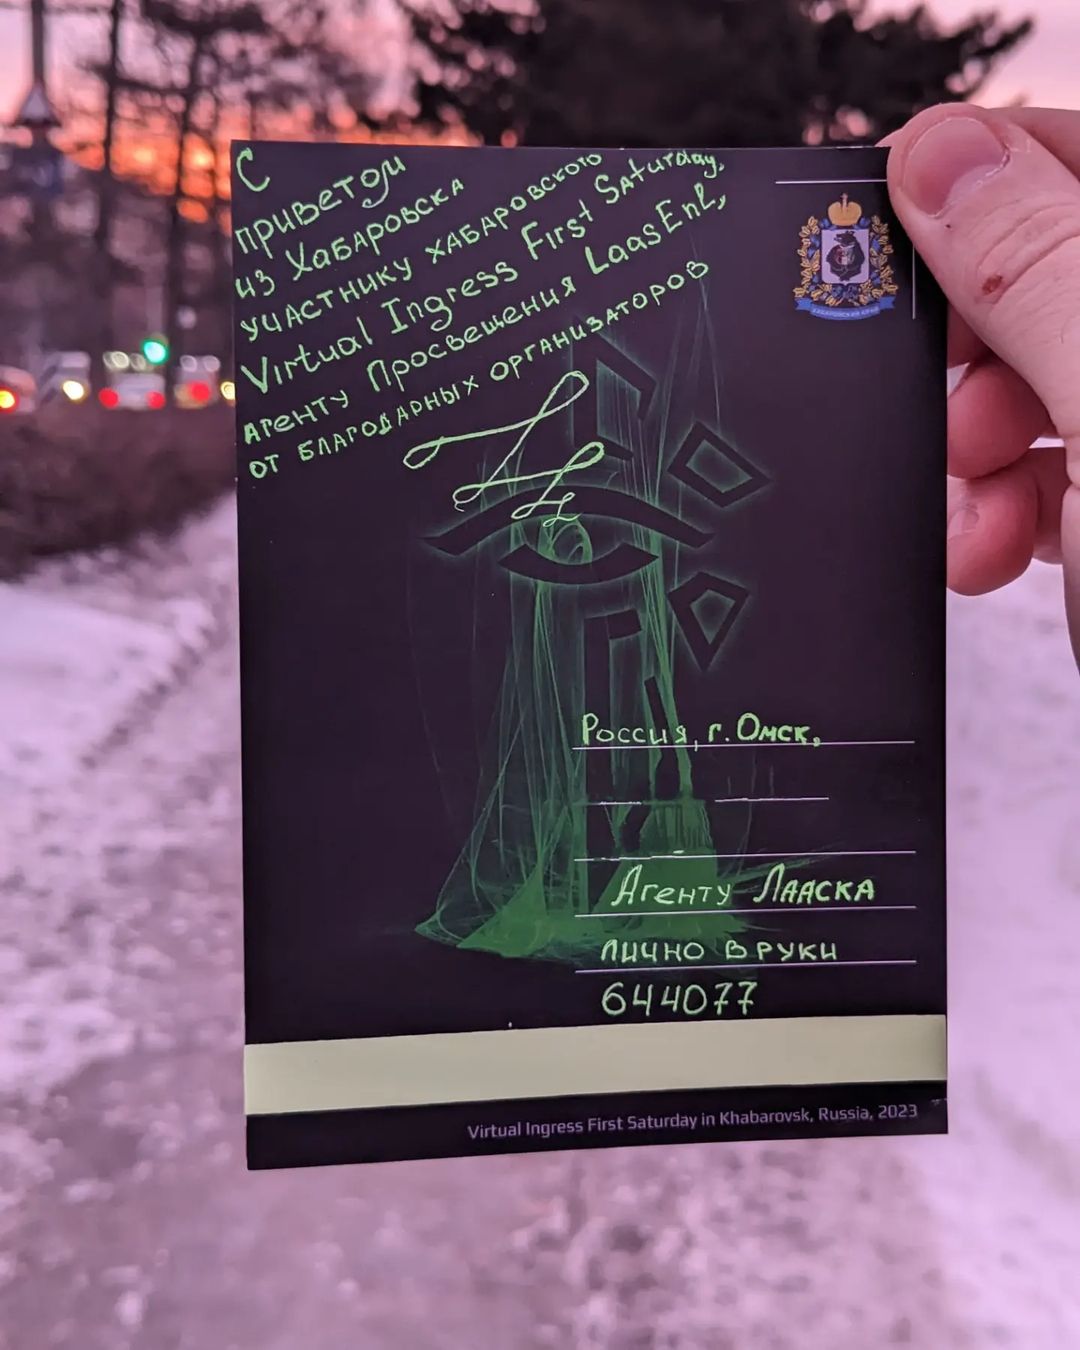 С
приветом
из Хабаровска
участнику хабаровского
Virtual Ingress First Saturday,
агенту Просвещения LaasEnL,
от благодарных организаторов
ХАБАРОВСКИЙ КРАЙ
Россия, г. Омск,
Агенту Лааска
лично в руки
644077
Virtual Ingress First Saturday in Khabarovsk, Russia, 2023